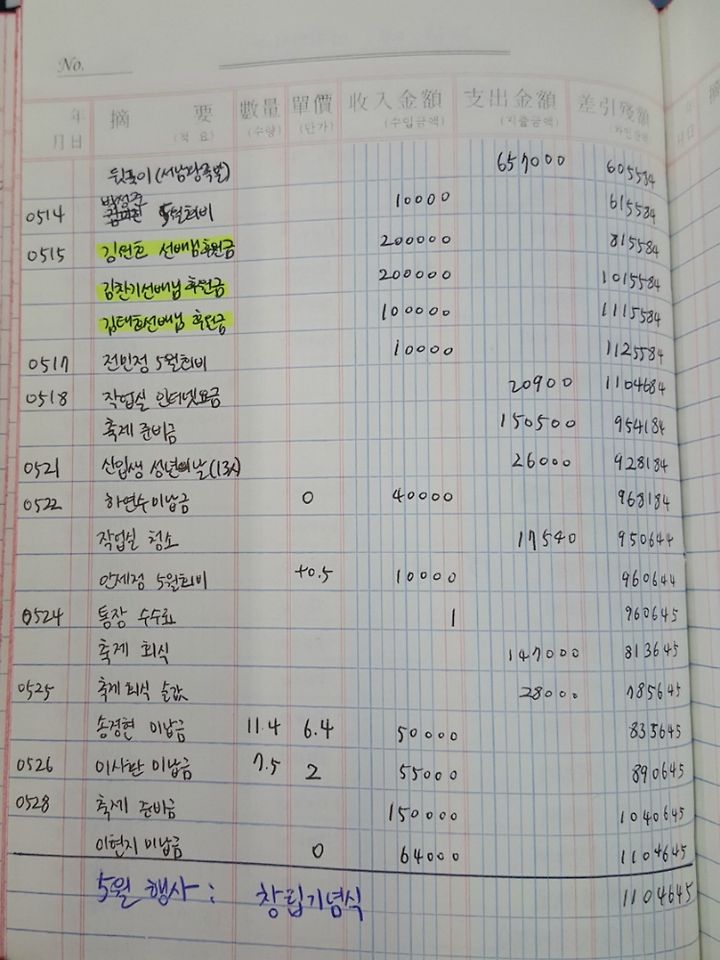 No.
年 月日 摘 要 (적 요) 數量 (수량) 單價 (단가) 收入金額 (수입금액) 支出金額 (지출금액) 差引殘額 (차인잔액)
뒷풀이 (서남왕족발) 657000 605584
0514 5월회비 10000 615584
0515 김연호 선배님 후원금 200000 815584
김찬기선배님 후원금 200000 1015584
김태호선배님 후원금 100000 1115584
0517 전민정 5월회비 10000 1125584
0518 작업실 인터넷요금 20900 1104684
축제 준비금 150500 954184
0521 신입생 성년의날 (13人) 26000 928184
0522 하연수 미납금 0 40000 968184
작업실 청소 17540 950644
안제정 5월회비 +0.5 10000 960644
0524 통장 수수료 1 960645
축제 회식 147000 813645
0525 축제 회식 술값 28000 785645
송경현 미납금 11.4 6.4 50000 835645
0526 이사란 미납금 7.5 2 55000 890645
0528 축제 준비금 150000 1040645
이현지 미납금 0 64000 1104645
5월 행사 : 창립기념식 1104645